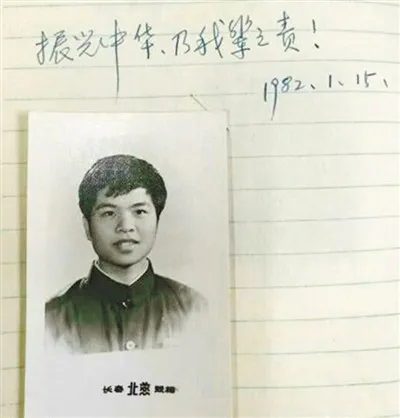 振兴中华、乃我辈之责！
1982.1.15.
长春 北燕 照相